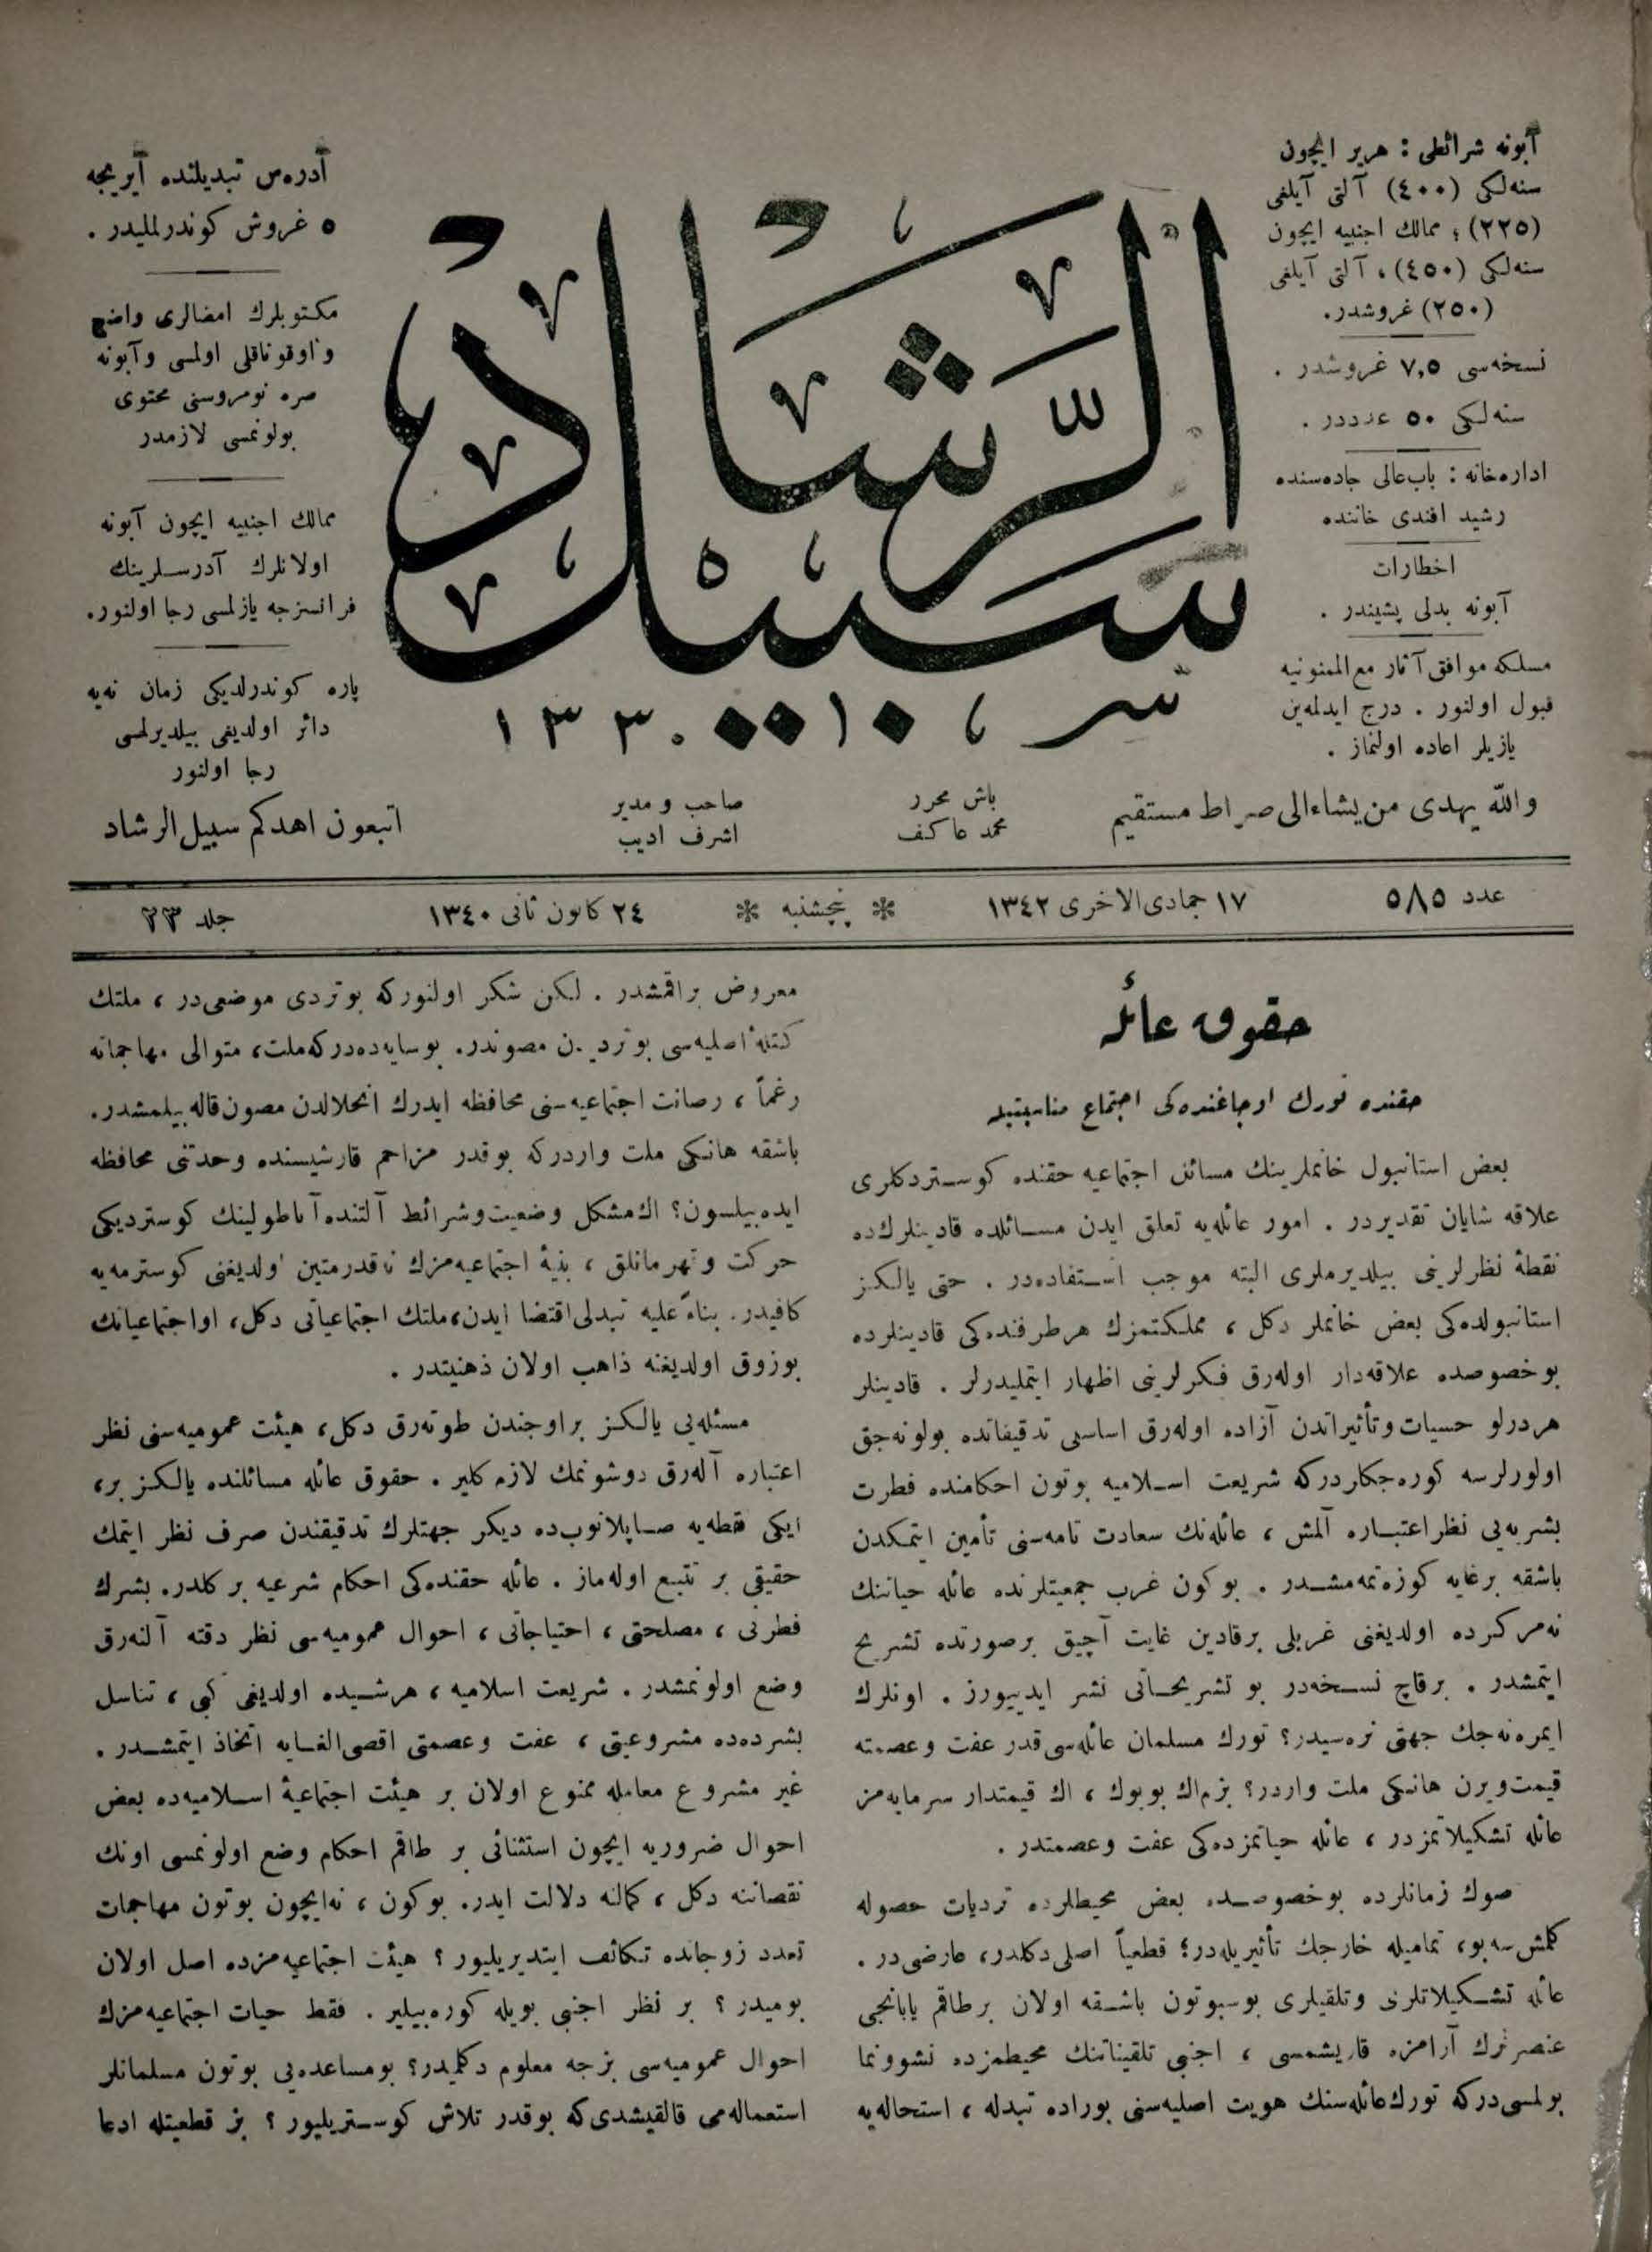 آبونه شرائطی : هریر ایچون
سنه‌لكی (٤٠٠) آلتی آیلغی
(٢٢٥) ؛ ممالك اجنبیه ایچون
سنه‌لكی (٤٥٠) ، آلتی آیلغی
(٢٥٠) غروشدر.
نسخه‌سی ٧,٥ غروشدر .
سنه‌لكی ٥٠ عدددر .
اداره‌خانه : باب‌عالی جاده‌سنده
رشید افندی خاننده
اخطارات
آبونه بدلی پشیندر .
مسلكه موافق آثار مع‌الممنونیه
قبول اولنور . درج ایدلمه‌ین
یازیلر اعاده اولنماز .
سبیل الرّشاد
١٣٣٠
آدره‌س تبدیلنده آیریجه
٥ غروش كوندرلملیدر .
مكتوبلرك امضالری واضح
واوقوناقلی اولمسی وآبونه
صره نومروسنی محتوی
بولونمسی لازمدر
ممالك اجنبیه ایچون آبونه
اولانلرك آدرسلرینك
فرانسزجه یازلمسی رجا اولنور.
پاره كوندرلدیكی زمان نه‌یه
دائر اولدیغی بیلدیرلمسی
رجا اولنور
والله یهدی من یشاء الی صراط مستقیم
باش محرر
محمد عاكف
صاحب و مدیر
اشرف ادیب
اتبعون اهدكم سبیل الرشاد
عدد ٥٨٥
١٧ جمادی الاخری ١٣٤٢
* پنجشنبه *
٢٤ كانون ثانی ١٣٤٠
جلد ٢٣
حقوق عائله
حقنده تورك اوجاغنده‌كی اجتماع مناسبتیله
بعض استانبول خانملرینك مسائل اجتماعیه حقنده كوستردكلری
علاقه شایان تقدیردر . امور عائله‌یه تعلق ایدن مسائلده قادینلرك‌ده
نقطۀ نظرلرینی بیلدیرملری البته موجب استفاده‌در . حتی یالكز
استانبولده‌كی بعض خانملر دكل ، مملكتمزك هر طرفنده‌كی قادینلرده
بوخصوصده علاقه‌دار اوله‌رق فكرلرینی اظهار ایتملیدرلر . قادینلر
هردرلو حسیات وتأثیراتدن آزاده اوله‌رق اساسلی تدقیقاتده بولونه‌جق
اولورلرسه كوره‌جكلردركه شریعت اسلامیه بوتون احكامنده فطرت
بشریه‌یی نظر اعتباره آلمش ، عائله‌نك سعادت تامه‌سنی تأمین ایتمكدن
باشقه برغایه كوزه‌تمه‌مشدر . بوكون غرب جمعیتلرنده عائله حیاتنك
نه‌مركزده اولدیغنی غربلی برقادین غایت آچیق برصورتده تشریح
ایتمشدر . برقاچ نسخه‌در بو تشریحاتی نشر ایدییورز . اونلرك
ایمره‌نه‌جك جهتی نره‌سیدر؟ تورك مسلمان عائله‌سی قدر عفت وعصمته
قیمت ویرن هانكی ملت واردر؟ بزم اك بویوك ، اك قیمتدار سرمایه‌مز
عائله تشكیلاتمزدر ، عائله حیاتمزده‌كی عفت وعصمتدر .
صوك زمانلرده بوخصوصده بعض محیطلرده تردیات حصوله
كلمش‌سه بو، تمامیله خارجك تأثیریله‌در؛ قطعیاً اصلی دكلدر، عارضی‌در .
عائله تشكیلاتلری وتلقیلری بوسبوتون باشقه اولان برطاقم یابانجی
عنصرلرك آرامزه قاریشمسی ، اجنبی تلقیناتنك محیطمزده نشوونما
بولمسی‌دركه تورك عائله‌سنك هویت اصلیه‌سنی بوراده تبدله ، استحاله‌یه
معروض براقمشدر . لكن شكر اولنوركه بوتردی موضعی‌در ، ملتك
كتلۀ اصلیه‌سی بوتردیدن مصوندر. بوسایه‌ده‌دركه‌ملت، متوالی مهاجماته
رغماً ، رصانت اجتماعیه‌سنی محافظه ایدرك انحلالدن مصون قاله‌بیلمشدر.
باشقه هانكی ملت واردركه بوقدر مزاحم قارشیسنده وحدتنی محافظه
ایده‌بیلسون؟ اك مشكل وضعیت وشرائط آلتنده آناطولینك كوستردیكی
حركت وقهرمانلق ، بنیۀ اجتماعیه‌مزك نه‌قدرمتین اولدیغنی كوسترمه‌یه
كافیدر. بناءً علیه تبدلی اقتضا ایدن، ملتك اجتماعیاتی دكل، اواجتماعیاتك
بوزوق اولدیغنه ذاهب اولان ذهنیتدر .
مسئله‌یی یالكز براوجندن طوته‌رق دكل، هیئت عمومیه‌سنی نظر
اعتباره آله‌رق دوشونمك لازم كلیر . حقوق عائله مسائلنده یالكز بر،
ایكی نقطه‌یه صاپلانوب‌ده دیكر جهتلرك تدقیقندن صرف نظر ایتمك
حقیقی بر تتبع اوله‌ماز . عائله حقنده‌كی احكام شرعیه بر كلدر. بشرك
فطرتی ، مصلحتی ، احتیاجاتی ، احوال عمومیه‌سی نظر دقته آلنه‌رق
وضع اولونمشدر . شریعت اسلامیه ، هرشیده اولدیغی كبی ، تناسل
بشرده‌ده مشروعیتی ، عفت وعصمتی اقصی‌الغایه اتخاذ ایتمشدر .
غیر مشروع معامله ممنوع اولان بر هیئت اجتماعیۀ اسلامیه‌ده بعض
احوال ضروریه ایچون استثنائی بر طاقم احكام وضع اولونمسی اونك
نقصاننه دكل ، كمالنه دلالت ایدر. بوكون ، نه‌ایچون بوتون مهاجمات
تعدد زوجاتده تكاثف ایتدیریلیور ؟ هیئت اجتماعیه‌مزده اصل اولان
بومیدر ؟ بر نظر اجنبی بویله كوره‌بیلیر . فقط حیات اجتماعیه‌مزك
احوال عمومیه‌سی بزجه معلوم دكلمیدر؟ بومساعده‌یی بوتون مسلمانلر
استعماله‌می قالقیشدی‌كه بوقدر تلاش كوستریلیور ؟ بز قطعیتله ادعا